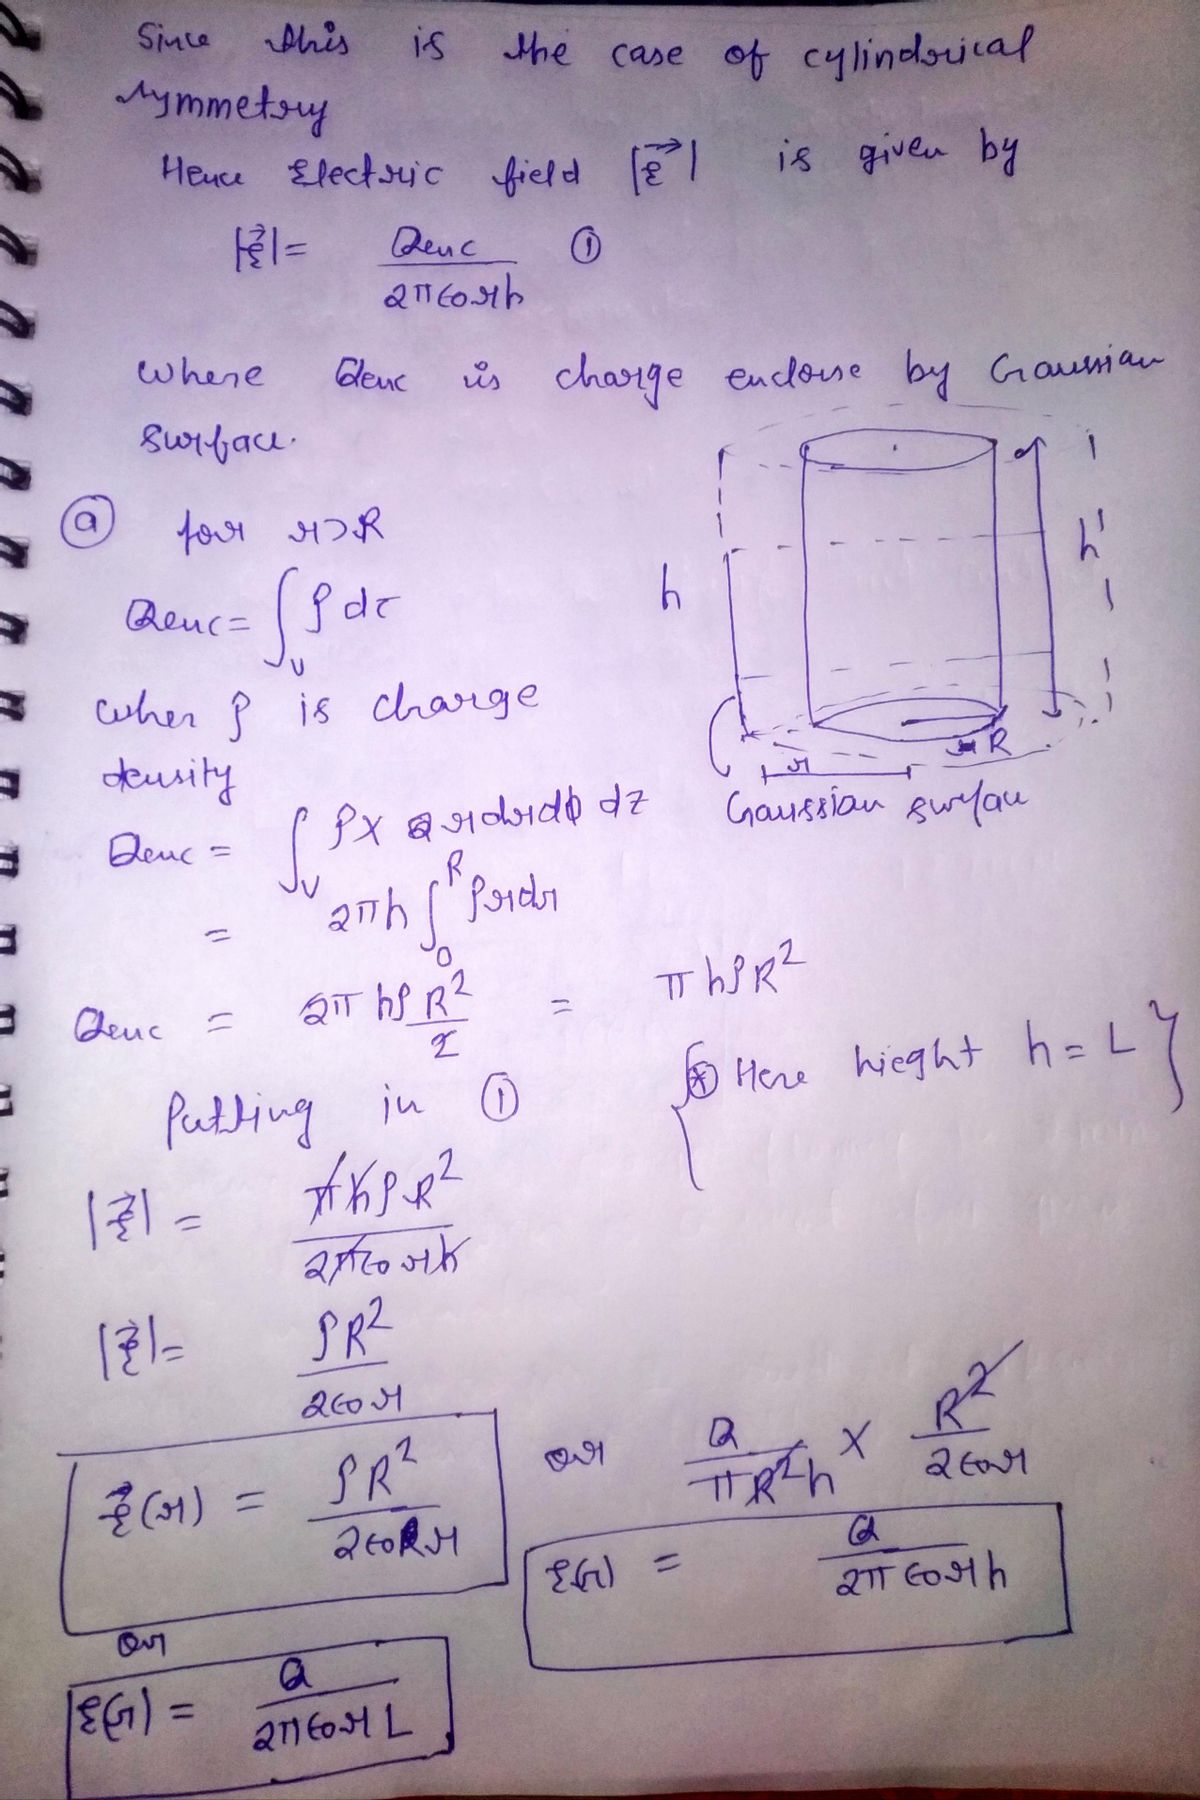 Since this is the case of cylindrical
symmetry
Hence Electric field |E⃗| is given by
|E⃗| = Qenc / 2π∈₀rh ①
where Qenc is charge enclose by Gaussian
surface.
ⓐ for r>R
Qenc = ∫_V ρ dτ
wher ρ is charge
density
Qenc = ∫_V ρ x r dr dϕ dz
= 2πh ∫_0^R ρ r dr
Qenc = 2π hρ R² / 2 = π hρR²
{ ⊛ Here hieght h = L }
Putting in ①
|E⃗| = πhρR² / 2π∈₀rh
|E⃗| = ρR² / 2∈₀r
E⃗(r) = ρR² / 2∈₀r or Q / πR²h x R² / 2∈₀r
E(r) = Q / 2π∈₀rh
or
E(r) = Q / 2π∈₀rL
h
h'
R
r
Gaussian surface